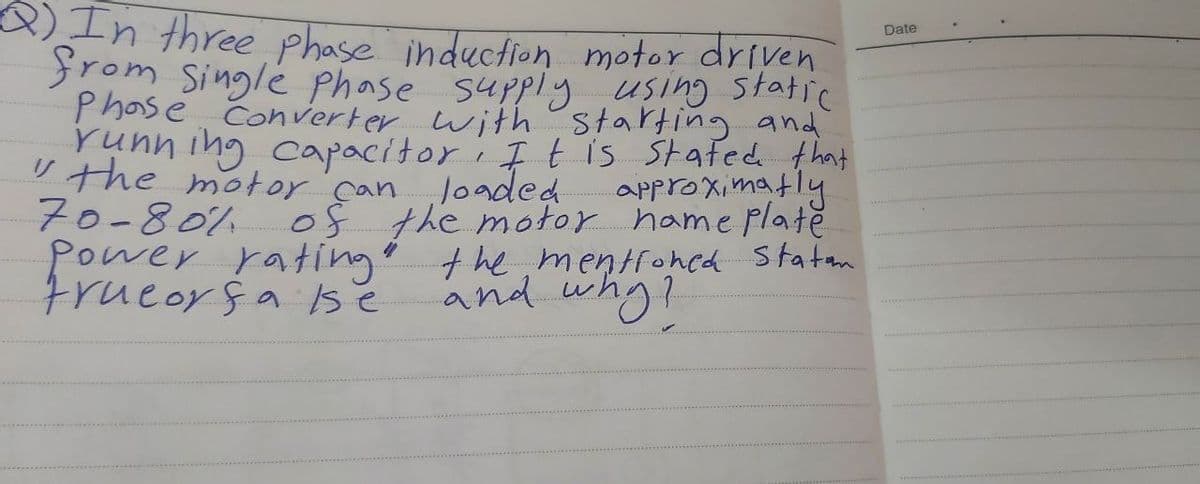 Date
Q) In three phase induction motor driven
from single phase supply using static
phase converter with starting and
running capacitor, It is stated that
"the motor can loaded approximatly
70-80% of the motor name plate
power rating" the mentioned statmn
true or false and why?